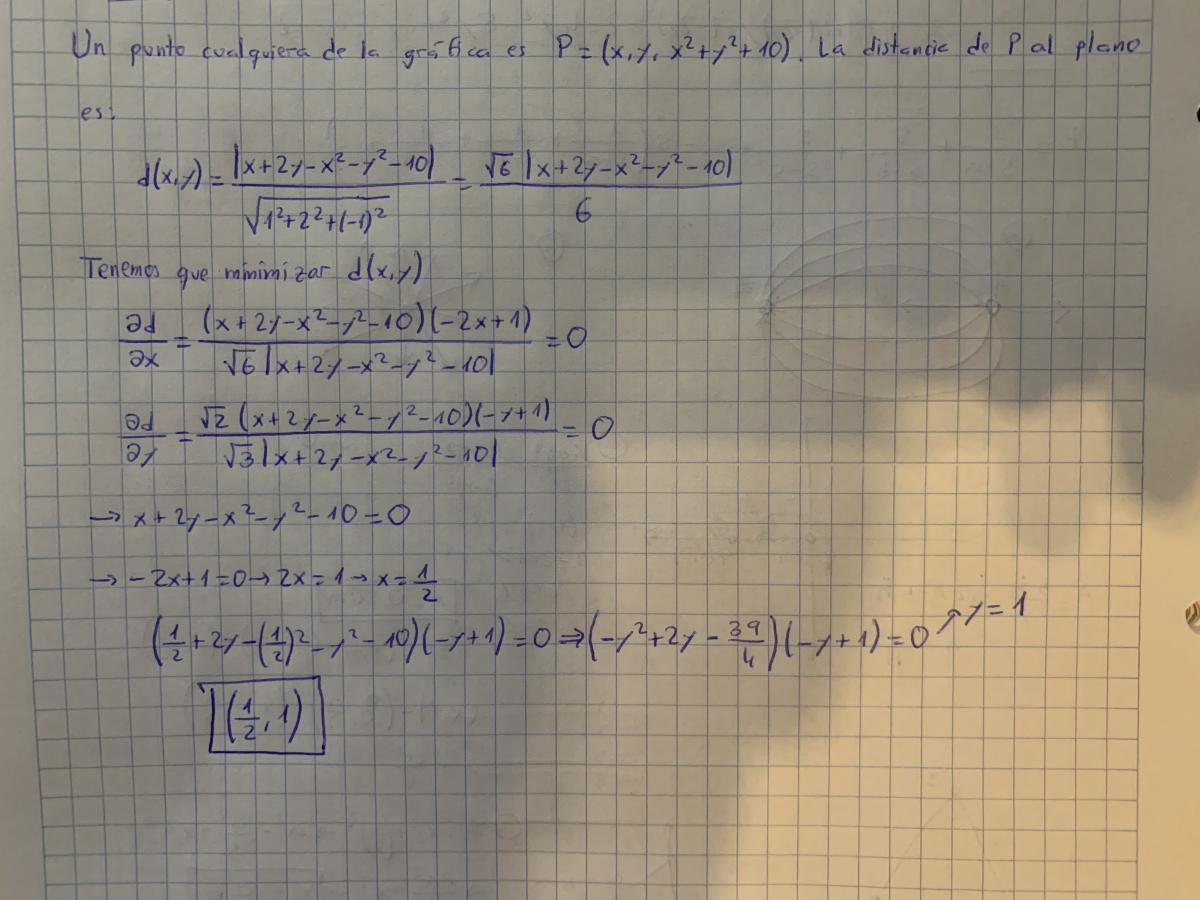 Un punto cualquiera de la gráfica es P = (x, y, x² + y² + 10). La distancia de P al plano
es:
d(x,y) = |x+2y-x²-y²-10| / √(1²+2²+(-1)²) = √6 |x+2y-x²-y²-10| / 6
Tenemos que minimizar d(x,y)
∂d/∂x = (x+2y-x²-y²-10)(-2x+1) / √6 |x+2y-x²-y²-10| = 0
∂d/∂y = √2 (x+2y-x²-y²-10)(-y+1) / √3 |x+2y-x²-y²-10| = 0
→ x+2y-x²-y²-10 = 0
→ -2x+1=0 → 2x=1 → x = 1/2
(1/2 + 2y - (1/2)² - y² - 10)(-y+1) = 0 ⇒ (-y²+2y - 39/4)(-y+1) = 0 ↗ y = 1
(1/2, 1)